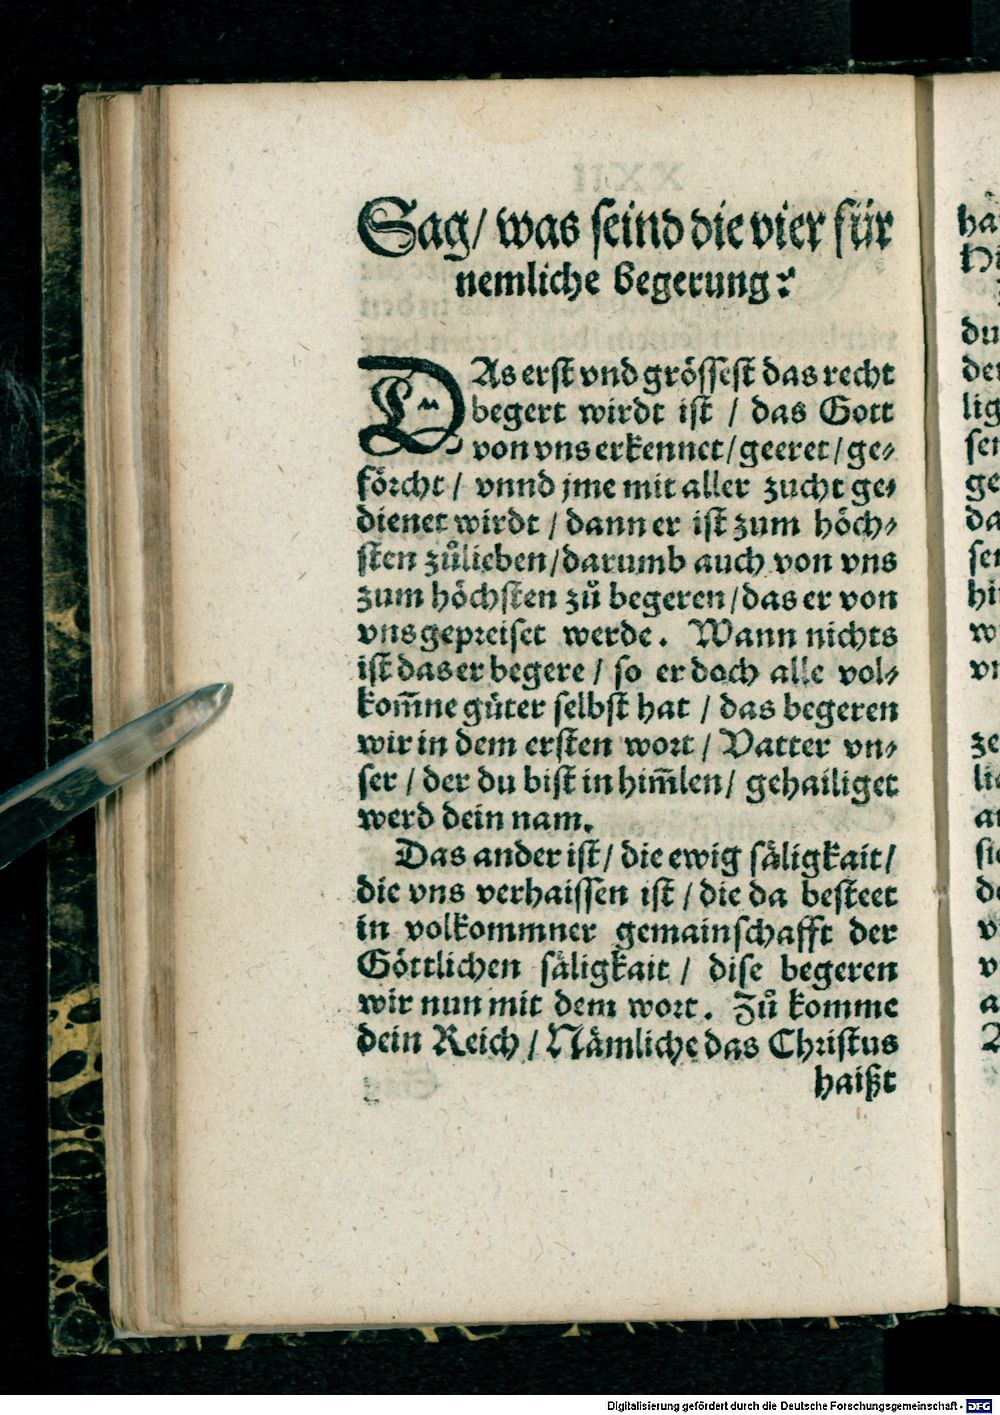 Sag/ was seind die vier für
nemliche begerung?
DAs erst vnd grössest das recht
begert wirdt ist / das Gott
von vns erkennet/geeret/ge⸗
förcht / vnnd jme mit aller zucht ge⸗
dienet wirdt / dann er ist zum höch⸗
sten zůlieben/darumb auch von vns
zum höchsten zů begeren/das er von
vns gepreiset werde. Wann nichts
ist das er begere / so er doch alle vol⸗
kom̃ne gůter selbst hat / das begeren
wir in dem ersten wort / Vatter vn⸗
ser / der du bist in him̃len/ gehailiget
werd dein nam.
Das ander ist/ die ewig säligkait/
die vns verhaissen ist / die da besteet
in volkommner gemainschafft der
Göttlichen säligkait / dise begeren
wir nun mit dem wort. Zů komme
dein Reich / Nämliche das Christus
haißt
Digitalisierung gefördert durch die Deutsche Forschungsgemeinschaft - DFG